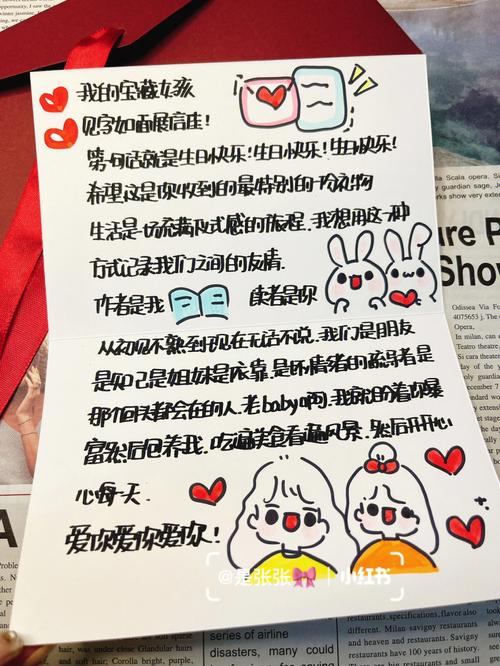 我的宝藏女孩
见字如面展信佳！
第一句话就是生日快乐！生日快乐！生日快乐！
希望这是你收到的最特别的一份礼物
生活是一场充满仪式感的旅程.我想用这一种
方式记录我们之间的友情.
作者是我 读者是你
从初见不熟到现在无话不说.我们是朋友
是知己是姐妹是依靠.是坏情绪的疏导者是
那个回头都会在的人.老baby啊.我就盼着你暴
富然后包养我.吃遍美食看遍风景.然后开开心
心每一天.
爱你爱你爱你！
@是张张 | 小红书
Scala opera. Si
guardian sage,
ure P
Show
Odissea Via Fo
4075653 j. The
Opera,
In milan, can
Teatro theatre,
Si cara theater
December 7
series of airline
disasters, many
could be
restaurants, specifications, flavor also
different. Milan savigny restaurants
have 100 years of history.